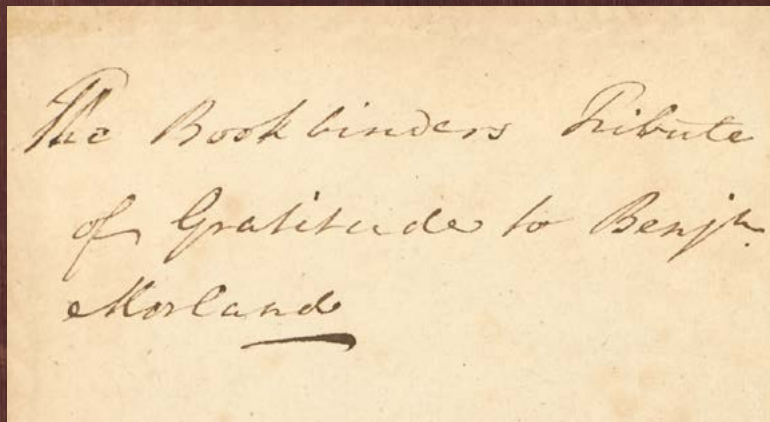 The Bookbinders Tribute
of Gratitude to Benjn.
Morland